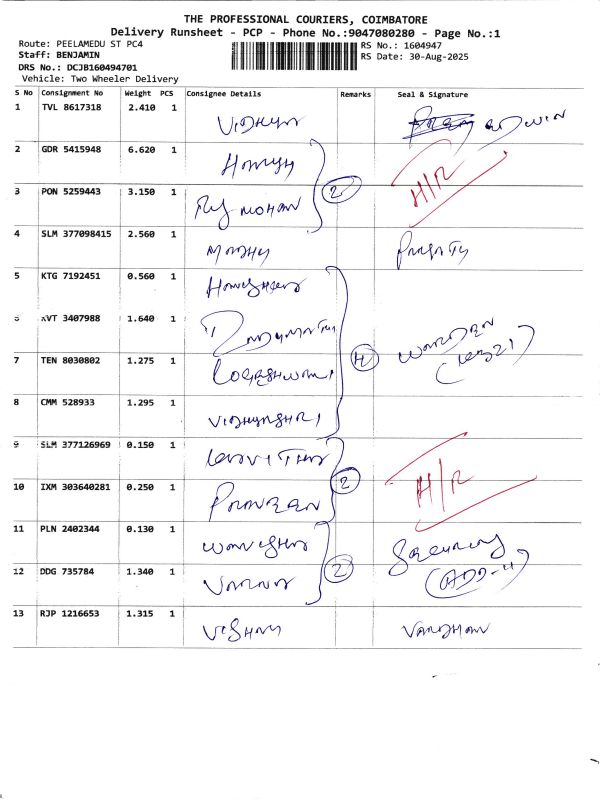 THE PROFESSIONAL COURIERS, COIMBATORE
Delivery Runsheet - PCP - Phone No.:9047080280 - Page No.:1
Route: PEELAMEDU ST PC4
Staff: BENJAMIN
DRS No.: DCJB160494701
Vehicle: Two Wheeler Delivery
RS No.: 1604947
RS Date: 30-Aug-2025
S No Consignment No Weight PCS Consignee Details Remarks Seal & Signature
1 TVL 8617318 2.410 1 EDWIN
2 GDR 5415948 6.620 1 H/R
3 PON 5259443 3.150 1 MOHAN 2
4 SLM 377098415 2.560 1 MADHU
5 KTG 7192451 0.560 1
6 KVT 3407988 1.640 1
7 TEN 8030802 1.275 1 LOGESHWARI 4 WARDEN
8 CMM 528933 1.295 1
9 SLM 377126969 0.150 1
10 IXM 303640281 0.250 1 PRAVEEN 2 H/R
11 PLN 2402344 0.130 1 Security
12 DDG 735784 1.340 1 2
13 RJP 1216653 1.315 1 VARDHAN